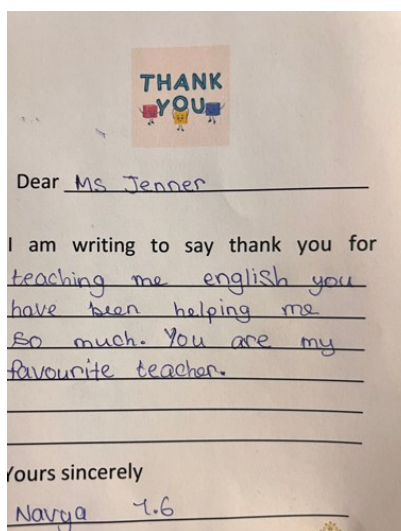 THANK
YOU
Dear Ms Jenner
I am writing to say thank you for
teaching me english you
have been helping me
so much. You are my
favourite teacher.
Yours sincerely
Navya 7.6